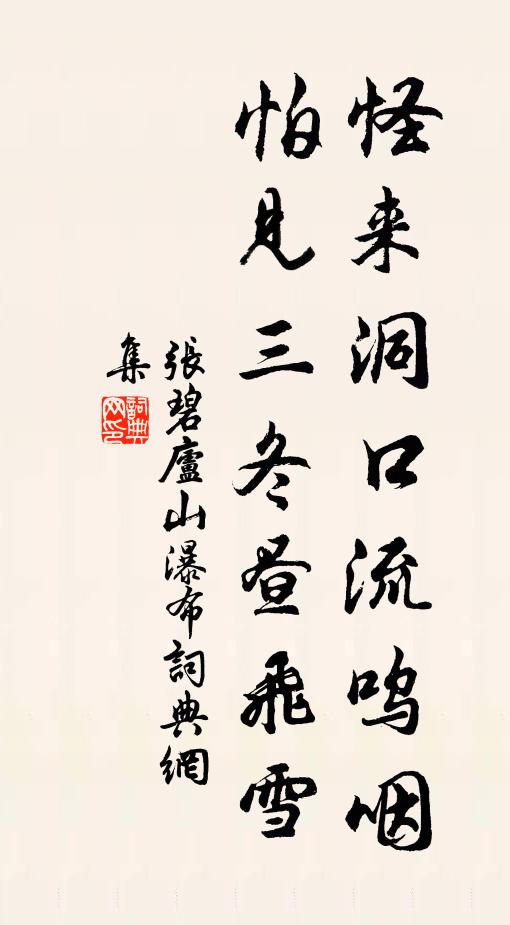 怪来洞口流呜咽
怕见三冬昼飞雪
張碧廬山瀑布詞典網
集
詞典网印